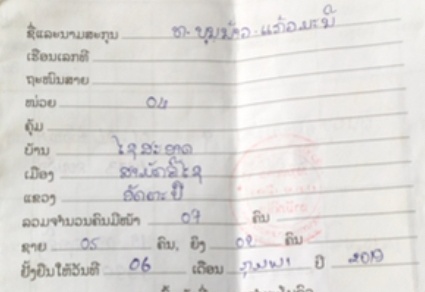 ຊື່ແລະນາມສະກຸນ ທ. ບຸນມ້າວ - ແກ້ວມະນີ
ເຮືອນເລກທີ
ຖະໜົນສາຍ
ໜ່ວຍ 04
ຄຸ້ມ
ບ້ານ ໄຊສະອາດ
ເມືອງ ສາມັກຄີໄຊ
ແຂວງ ອັດຕະປື
ລວມຈຳນວນຄົນມີໜ້າ 07 ຄົນ
ຊາຍ 05 ຄົນ, ຍິງ 02 ຄົນ
ຢັ້ງຢືນໃຫ້ວັນທີ 06 ເດືອນ ກຸມພາ ປີ